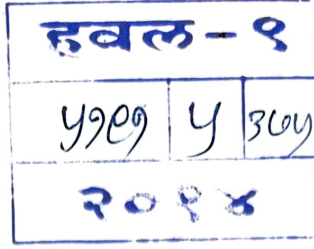 हवल-१
५१९१ ५ ३७५
२०१४